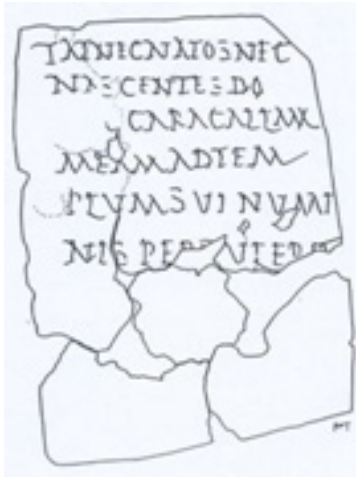 TATNECNATOSNEC
NASCENTESDO
CARACALLAM
MEAMADTEM
PLVMSVINVMI
NISPER